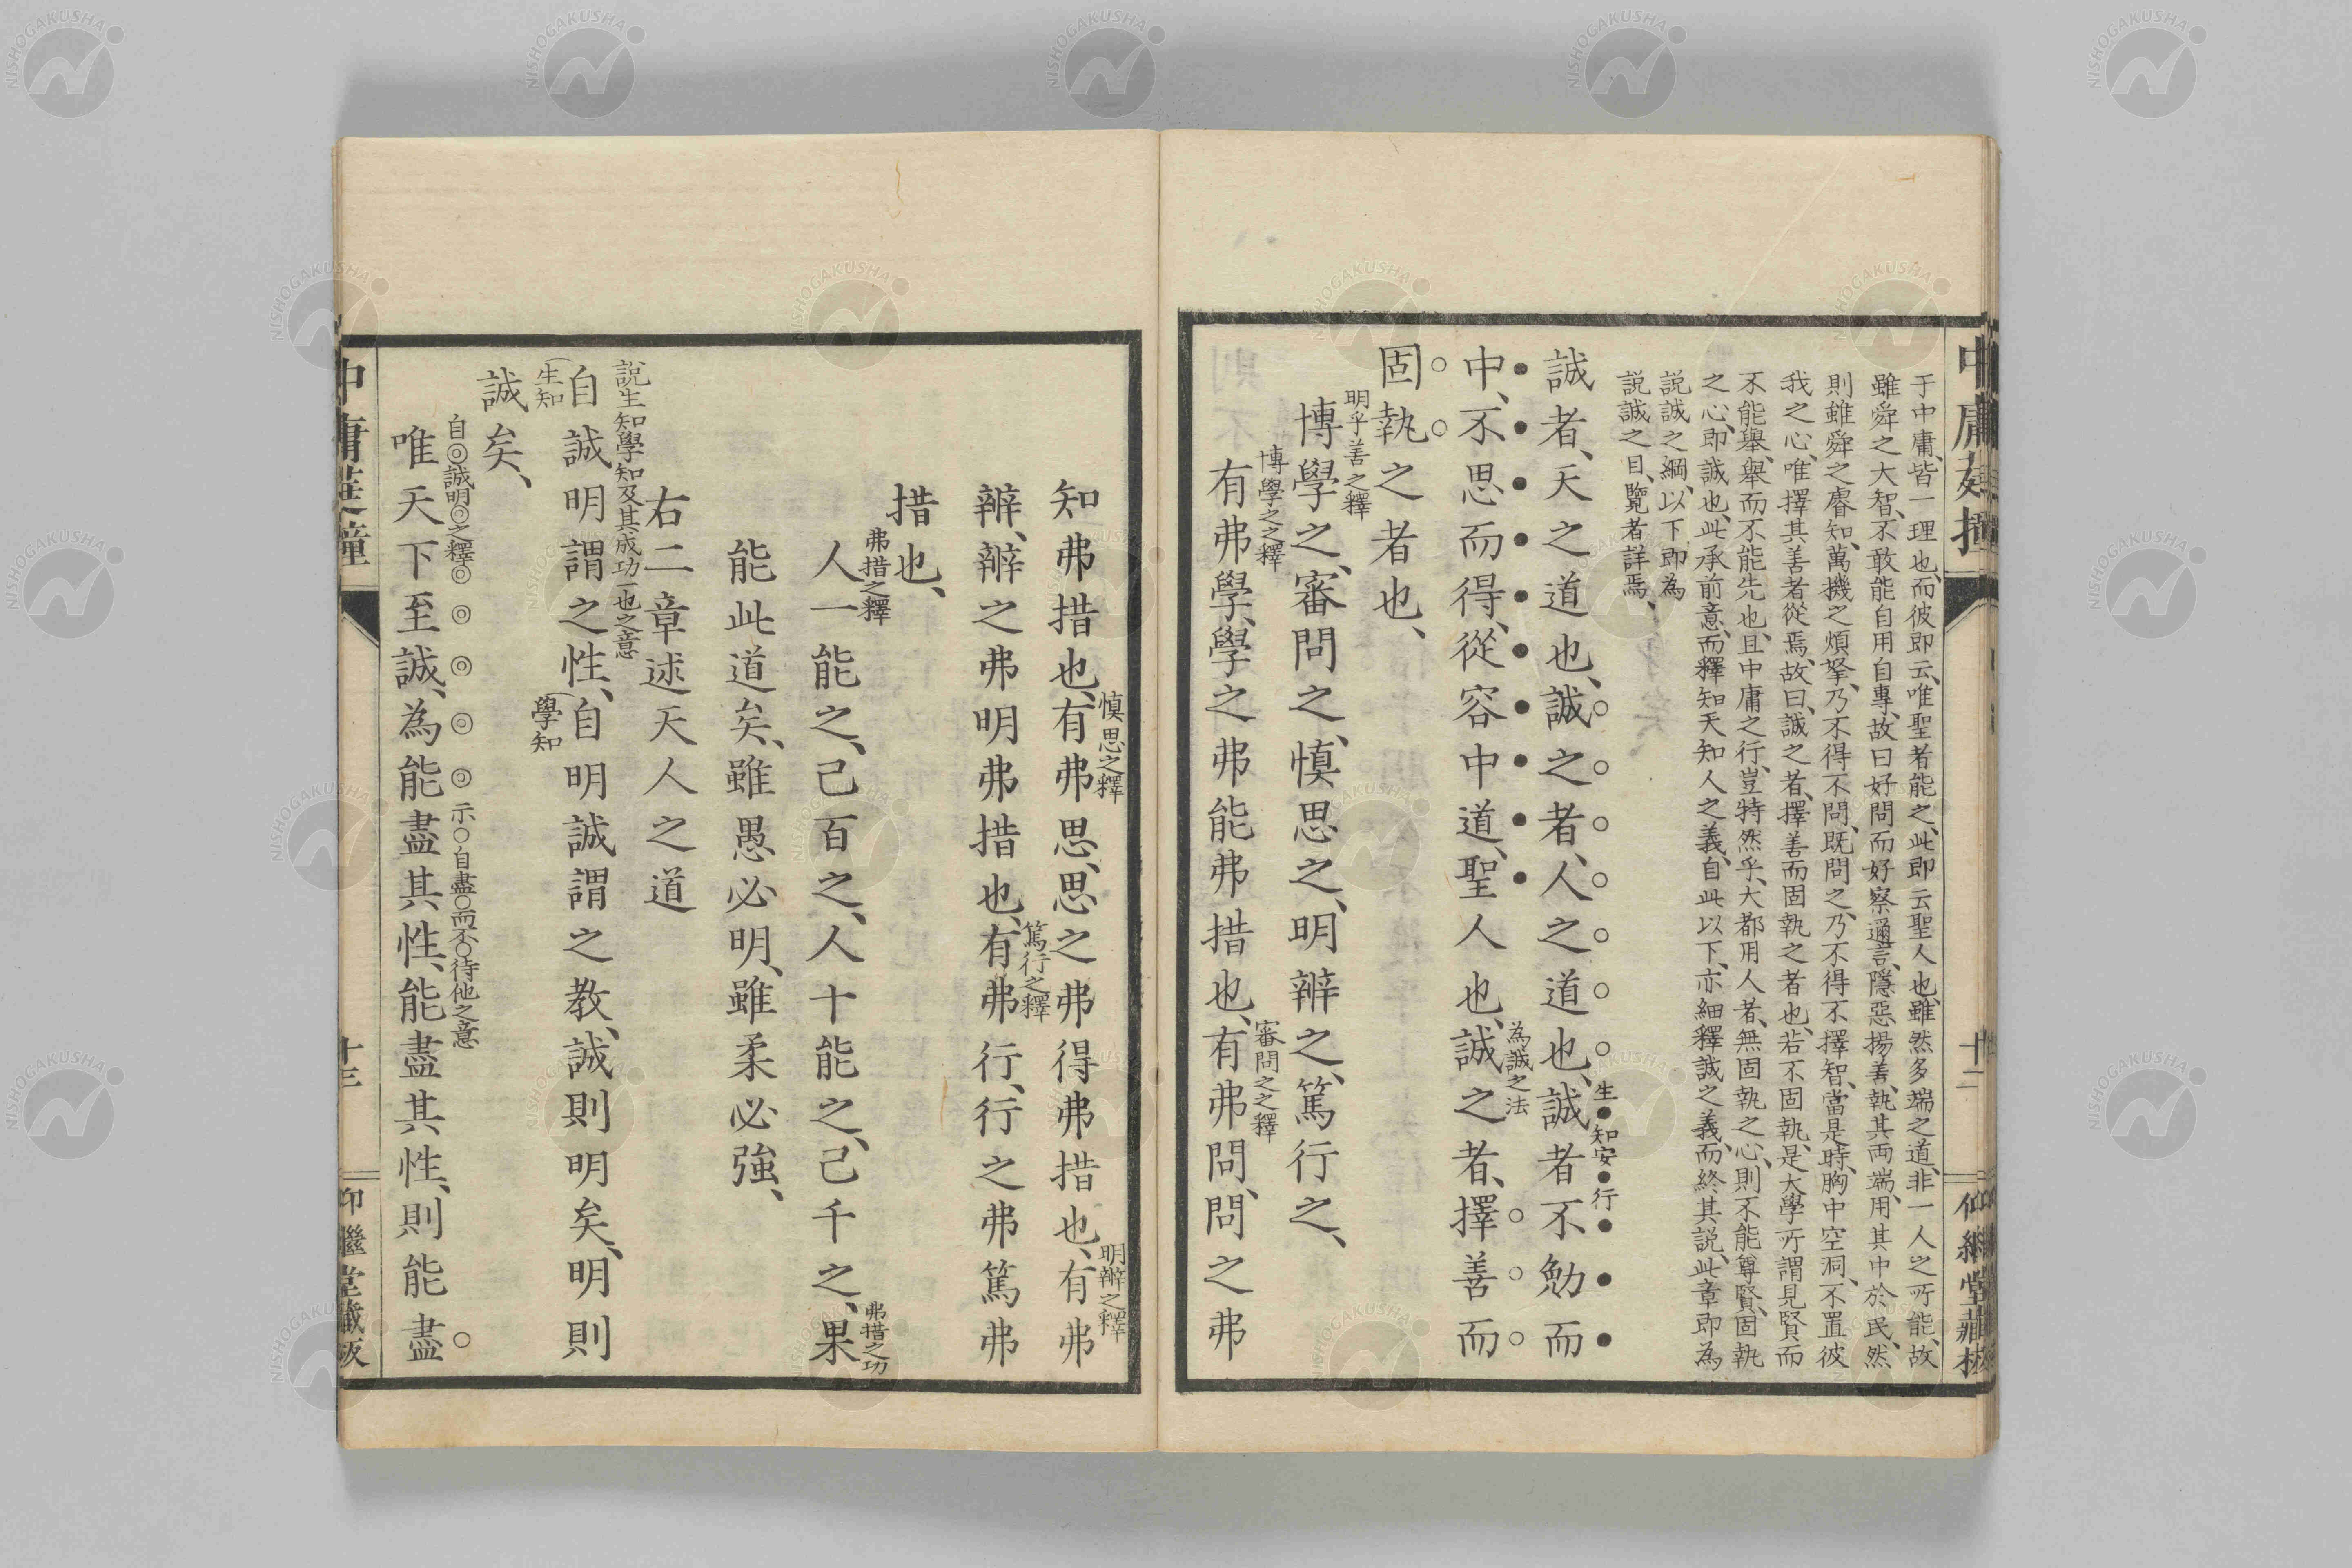 于中庸、皆一理也、而彼即云、唯聖者能之、此即云聖人也、雖然多端之道、非一人之所能、故
雖舜之大智、不敢能自用自專、故曰好問而好察邇言、隱惡揚善、執其兩端、用其中於民、然
則雖舜之睿知、萬機之煩拏、乃不得不問、既問之、乃不得不擇智、當是時、胸中空洞、不置彼
我之心、唯擇其善者從焉、故曰、誠之者、擇善而固執之者也、若不固執、是大學所謂見賢而
不能舉、舉而不能先也、且中庸之行、豈特然乎、大都用人者、無固執之心、則不能尊賢、固執
之心、即誠也、此承前意、而釋知天知人之義、自此以下、亦細釋誠之義、而終其説、此章即為
説誠之綱、以下即為
説誠之目、覽者詳焉、
誠者、天之道也、誠之者、人之道也、誠者不勉而
生知安行
中、不思而得、從容中道、聖人也、誠之者、擇善而
為誠之法
固執之者也、
明乎善之釋
博學之、審問之、慎思之、明辨之、篤行之、
博學之之釋
審問之之釋
有弗學、學之弗能弗措也、有弗問、問之弗
十二
慎思之釋
明辨之釋
知弗措也、有弗思、思之弗得弗措也、有弗
篤行之釋
辨、辨之弗明弗措也、有弗行、行之弗篤弗
措也、
弗措之釋
弗措之功
人一能之、己百之、人十能之、己千之、果
能此道矣、雖愚必明、雖柔必強、
右二章述天人之道
説生知學知及其成功一也之意
自誠明謂之性、自明誠謂之教、誠則明矣、明則
生知
學知
誠矣、
自誠明之釋
示自盡而不待他之意
唯天下至誠、為能盡其性、能盡其性、則能盡
十三